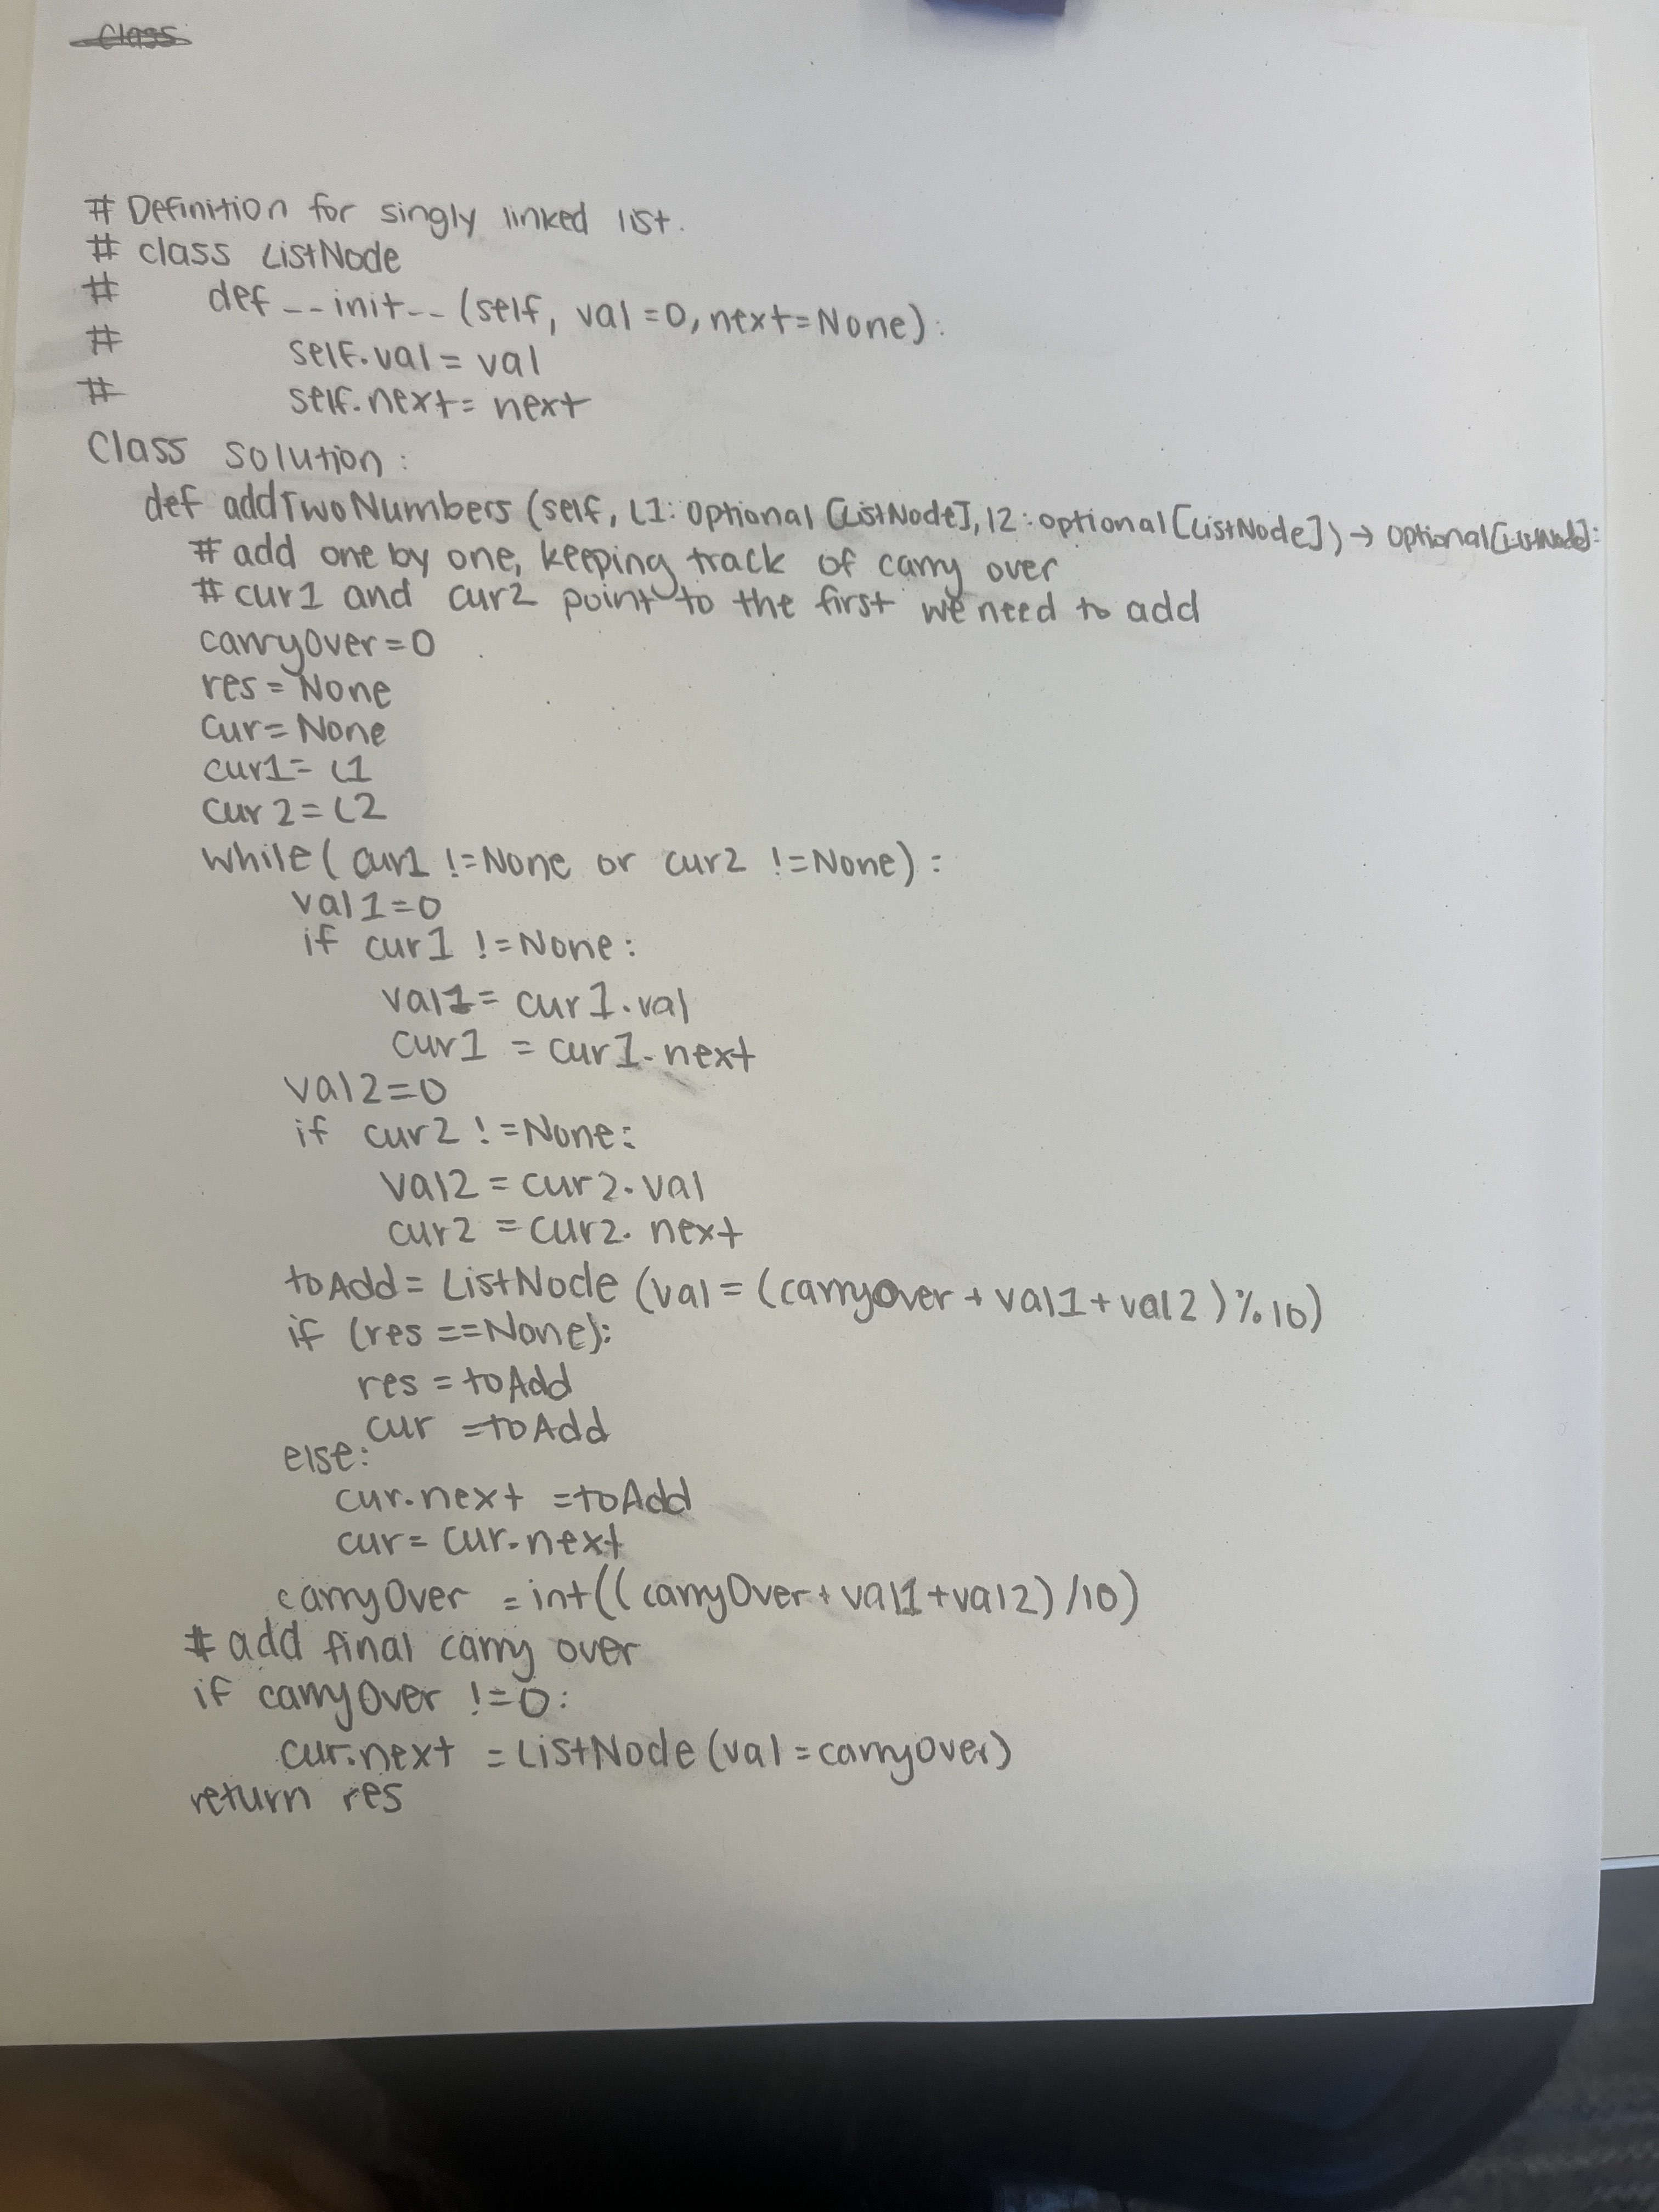 # Definition for singly linked list.
# class ListNode
#     def __init__(self, val=0, next=None):
#         self.val = val
#         self.next = next
Class Solution:
    def addTwoNumbers (self, L1: Optional [ListNode], l2: optional [ListNode]) → Optional[ListNode]:
        # add one by one, keeping track of carry over
        # cur1 and cur2 point to the first we need to add
        carryOver=0
        res = None
        cur= None
        cur1= L1
        cur2= L2
        while( cur1 !=None or cur2 !=None) :
            val1=0
            if cur1 !=None:
                val1= cur1.val
                cur1 = cur1.next
            val2=0
            if cur2 !=None:
                val2 = cur2.val
                cur2 = cur2.next
            toAdd= ListNode (val = (carryover + val1 + val2) % 10)
            if (res ==None):
                res = toAdd
                cur =toAdd
            else:
                cur.next =toAdd
                cur= cur.next
            carryOver = int((carryOver + val1 + val2) /10)
        # add final carry over
        if carryOver !=0:
            cur.next = ListNode (val = carryover)
        return res